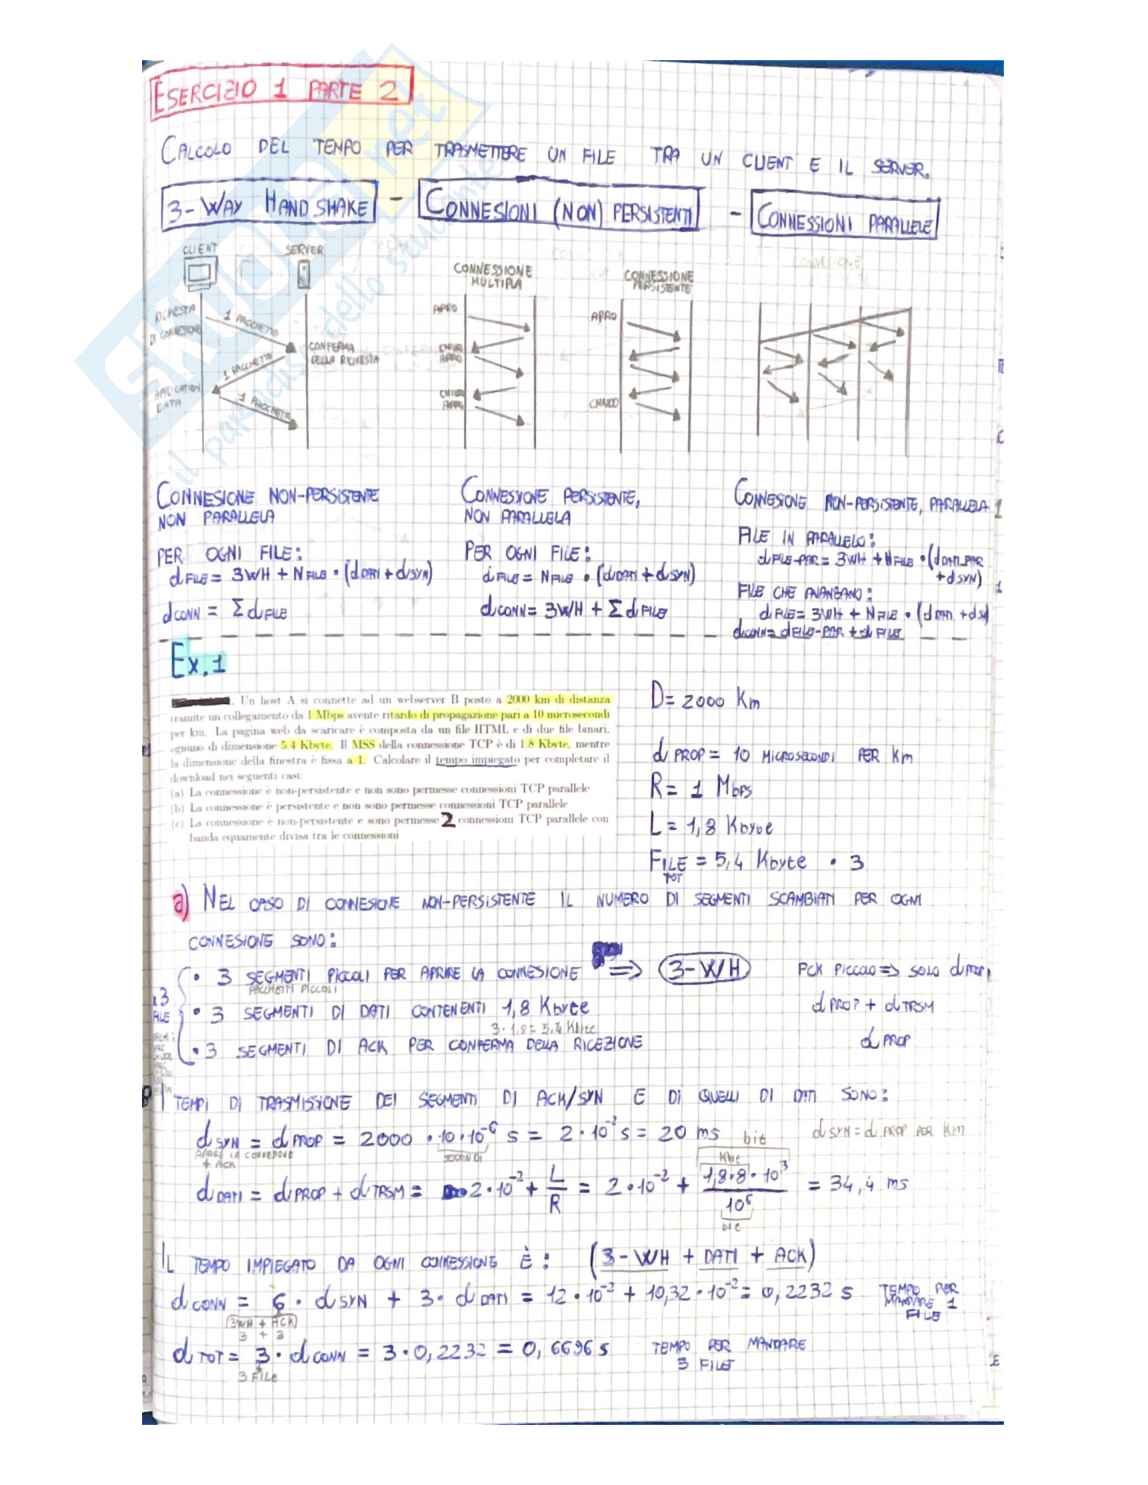 ESERCIZIO 1 PARTE 2
CALCOLO DEL TEMPO PER TRASMETTERE UN FILE TRA UN CLIENT E IL SERVER.
3-WAY HANDSHAKE - CONNESIONI (NON) PERSISTENTI - CONNESSIONI PARALLELE
CLIENT SERVER
CONNESSIONE MULTIPLA
CONNESSIONE PERSISTENTE
RICHIESTA DI CONNESSIONE
1 PACCHETTO
CONFERMA DELLA RICHIESTA
1 PACCHETTO
APPLICATION DATA
1 PACCHETTO
APRO
CHIUDO
APRO
CHIUDO
APRO
APRO
CHIUDO
CONNESIONE NON-PERSISTENTE
NON PARALLELA
PER OGNI FILE:
d FILE = 3WH + N FILE • (d DATI + d SYN)
d CONN = Σ d FILE
CONNESSIONE PERSISTENTE,
NON PARALLELA
PER OGNI FILE:
d FILE = N FILE • (d DATI + d SYN)
d CONN = 3WH + Σ d FILE
CONNESIONE NON-PERSISTENTE, PARALLELA
FILE IN PARALLELO:
d FILE-PAR = 3WH + N FILE • (d DATI_PAR
+ d SYN)
FILE CHE AVANZANO:
d FILE = 3WH + N FILE • (d DATI + d SY
Ex.1
. Un host A si connette ad un webserver B posto a 2000 km di distanza
tramite un collegamento da 1 Mbps avente ritardo di propagazione pari a 10 microsecondi
per km. La pagina web da scaricare è composta da un file HTML e di due file binari,
ognuno di dimensione 5.4 Kbyte. Il MSS della connessione TCP è di 1.8 Kbyte, mentre
la dimensione della finestra è fissa a 1. Calcolare il tempo impiegato per completare il
download nei seguenti casi:
(a) La connessione è non-persistente e non sono permesse connessioni TCP parallele
(b) La connessione è persistente e non sono permesse connessioni TCP parallele
(c) La connessione è non-persistente e sono permesse 2 connessioni TCP parallele con
banda equamente divisa tra le connessioni
D = 2000 Km
d PROP = 10 MICROSECONDI PER Km
R = 1 Mbps
L = 1,8 Kbyte
FILE TOT = 5,4 Kbyte • 3
a) NEL CASO DI CONNESIONE NON-PERSISTENTE IL NUMERO DI SEGMENTI SCAMBIATI PER OGNI
CONNESIONE SONO:
• 3 SEGMENTI PICCOLI PER APRIRE LA CONNESIONE ⇒ 3-WH PCK PICCOLO ⇒ SOLO d PROP
PACCHETTI PICCOLI
x3 FILE
• 3 SEGMENTI DI DATI CONTENENTI 1,8 Kbyte d PROP + d TRSM
3 • 1,8 = 5,4 Kbyte
• 3 SEGMENTI DI ACK PER CONFERMA DELLA RICEZIONE d PROP
I TEMPI DI TRASMISSIONE DEI SEGMENTI DI ACK/SYN E DI QUELLI DI DATI SONO:
d SYN = d PROP = 2000 • 10 • 10⁻⁶ s = 2 • 10⁻² s = 20 ms d SYN = d PROP PER KM
APRE LA CONNESIONE + ACK
SECONDI
bit
Kbit
d DATI = d PROP + d TRSM = 2 • 10⁻² + L/R = 2 • 10⁻² + 1,8 • 8 • 10³ / 10⁶ = 34,4 ms
bit
IL TEMPO IMPIEGATO DA OGNI CONNESSIONE È: (3-WH + DATI + ACK)
d CONN = 6 • d SYN + 3 • d DATI = 12 • 10⁻² + 10,32 • 10⁻² = 0,2232 s TEMPO PER MANDARE 1 FILE
3WH + ACK
3 + 3
d TOT = 3 • d CONN = 3 • 0,2232 = 0,6696 s TEMPO PER MANDARE 3 FILET
3 FILE